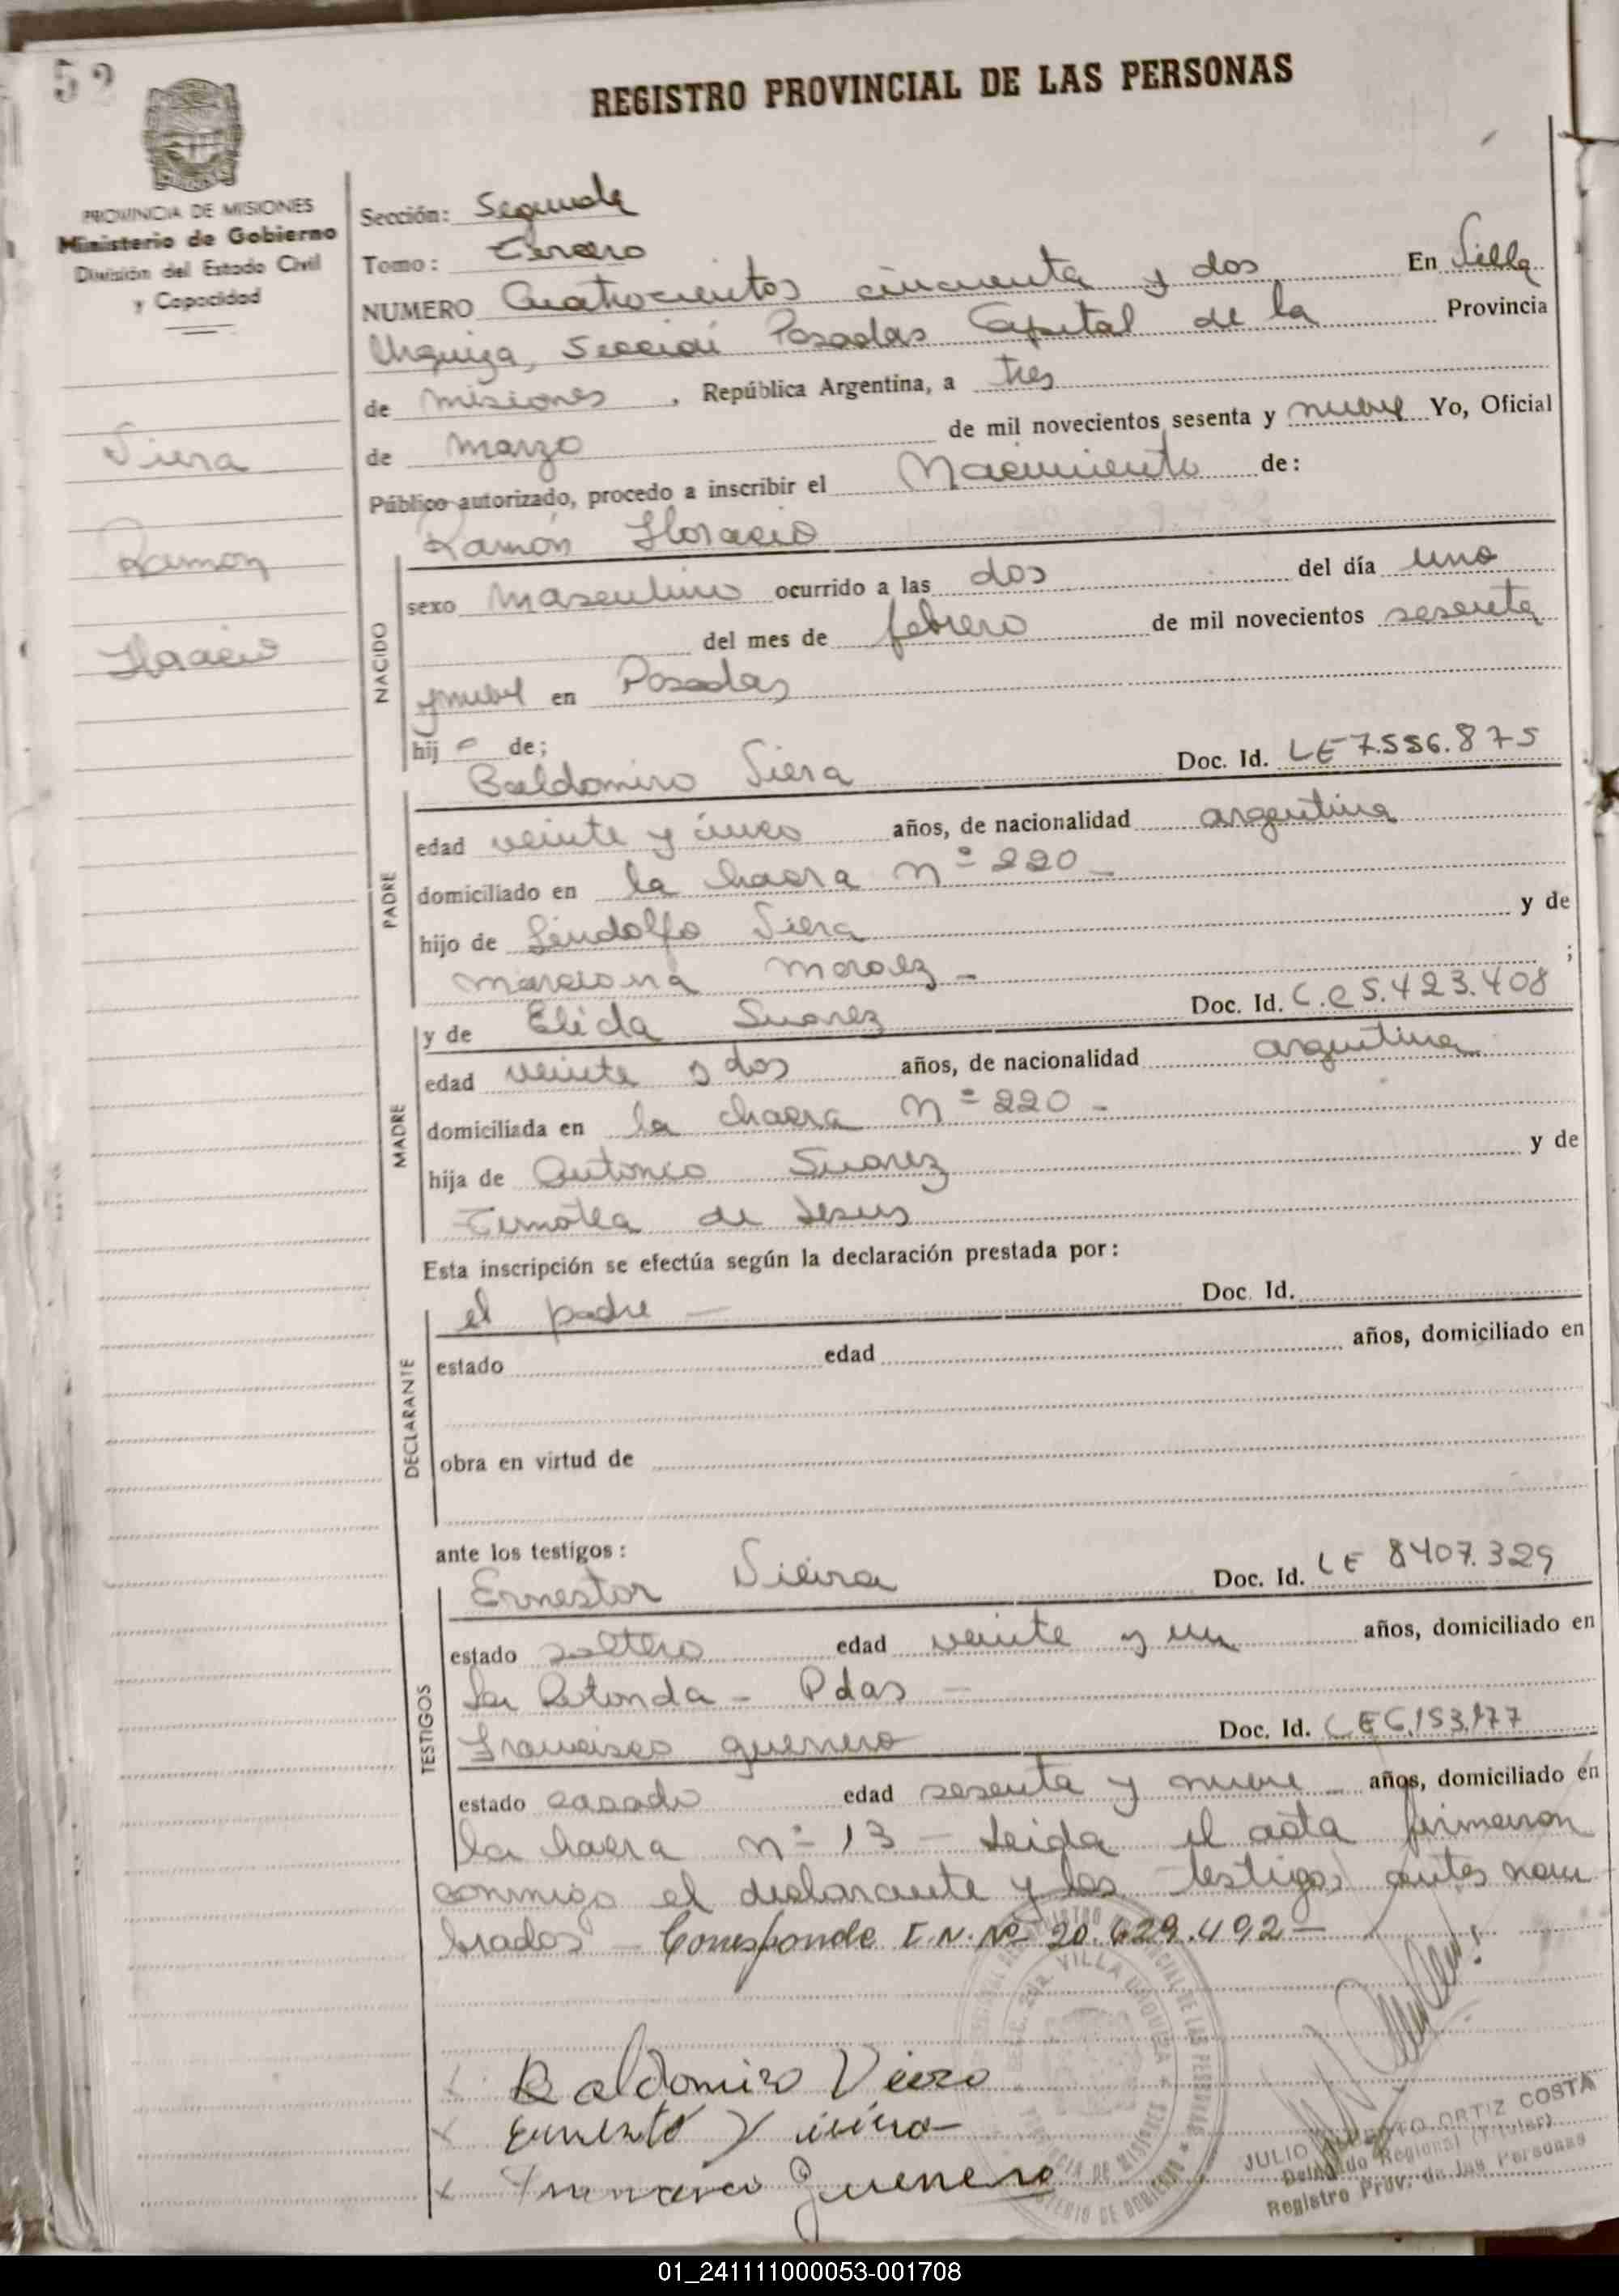 52
REGISTRO PROVINCIAL DE LAS PERSONAS
PROVINCIA DE MISIONES
Ministerio de Gobierno
División del Estado Civil
y Capacidad
Viera
Ramon
Horacio
Sección: Segunda
Tomo: Tercero
NUMERO Cuatrocientos cincuenta y dos En Villa
Urquiza, Sección Posadas Capital de la Provincia
de Misiones, República Argentina, a tres
de marzo de mil novecientos sesenta y nueve Yo, Oficial
Público autorizado, procedo a inscribir el Nacimiento de:
Ramón Horacio
NACIDO
sexo masculino ocurrido a las dos del día uno
del mes de febrero de mil novecientos sesenta
y nueve en Posadas
hijo de;
Baldomiro Viera Doc. Id. LE 7.556.875
PADRE
edad veinte y cinco años, de nacionalidad argentina
domiciliado en la chacra nº 220 -
hijo de Lindolfo Viera y de
Marciona Moraez - ;
y de Elida Suarez Doc. Id. C.C 5.423.408
MADRE
edad veinte y dos años, de nacionalidad argentina
domiciliada en la chacra nº 220 -
hija de Antonio Suarez y de
Timotea de Jesus
Esta inscripción se efectúa según la declaración prestada por:
el padre — Doc. Id.
DECLARANTE
estado edad años, domiciliado en
obra en virtud de
ante los testigos:
Ernestor Vieira Doc. Id. LE 8407.329
TESTIGOS
estado soltero edad veinte y un años, domiciliado en
La Rotonda - Pdas -
Francisco Guerrero Doc. Id.
estado casado edad sesenta y nueve años, domiciliado en
la chacra nº 13 - Leida el acta firmaron
conmigo el declarante y los testigos antes nom
brados - Corresponde I.N. Nº 20.629.492 -
x Baldomiro Viera
x Ernesto Vieira
x Francisco Guerrero
REGISTRO PROVINCIAL DE LAS PERSONAS
SECC. 2da. VILLA URQUIZA
PROVINCIA DE MISIONES
MINISTERIO DE GOBIERNO
JULIO ALBERTO ORTIZ COSTA
Delegado Regional (Titular)
Registro Prov. de las Personas
01_241111000053-001708